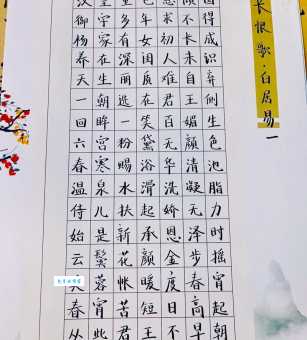 长恨歌·白居易
御宇多年求不得
杨家有女初长成
养在深闺人未识
天生丽质难自弃
一朝选在君王侧
回眸一笑百媚生
六宫粉黛无颜色
春寒赐浴华清池
温泉水滑洗凝脂
侍儿扶起娇无力
始是新承恩泽时
云鬓花颜金步摇
蓉帐暖度春宵
春宵苦短日高起
从此君王不早朝